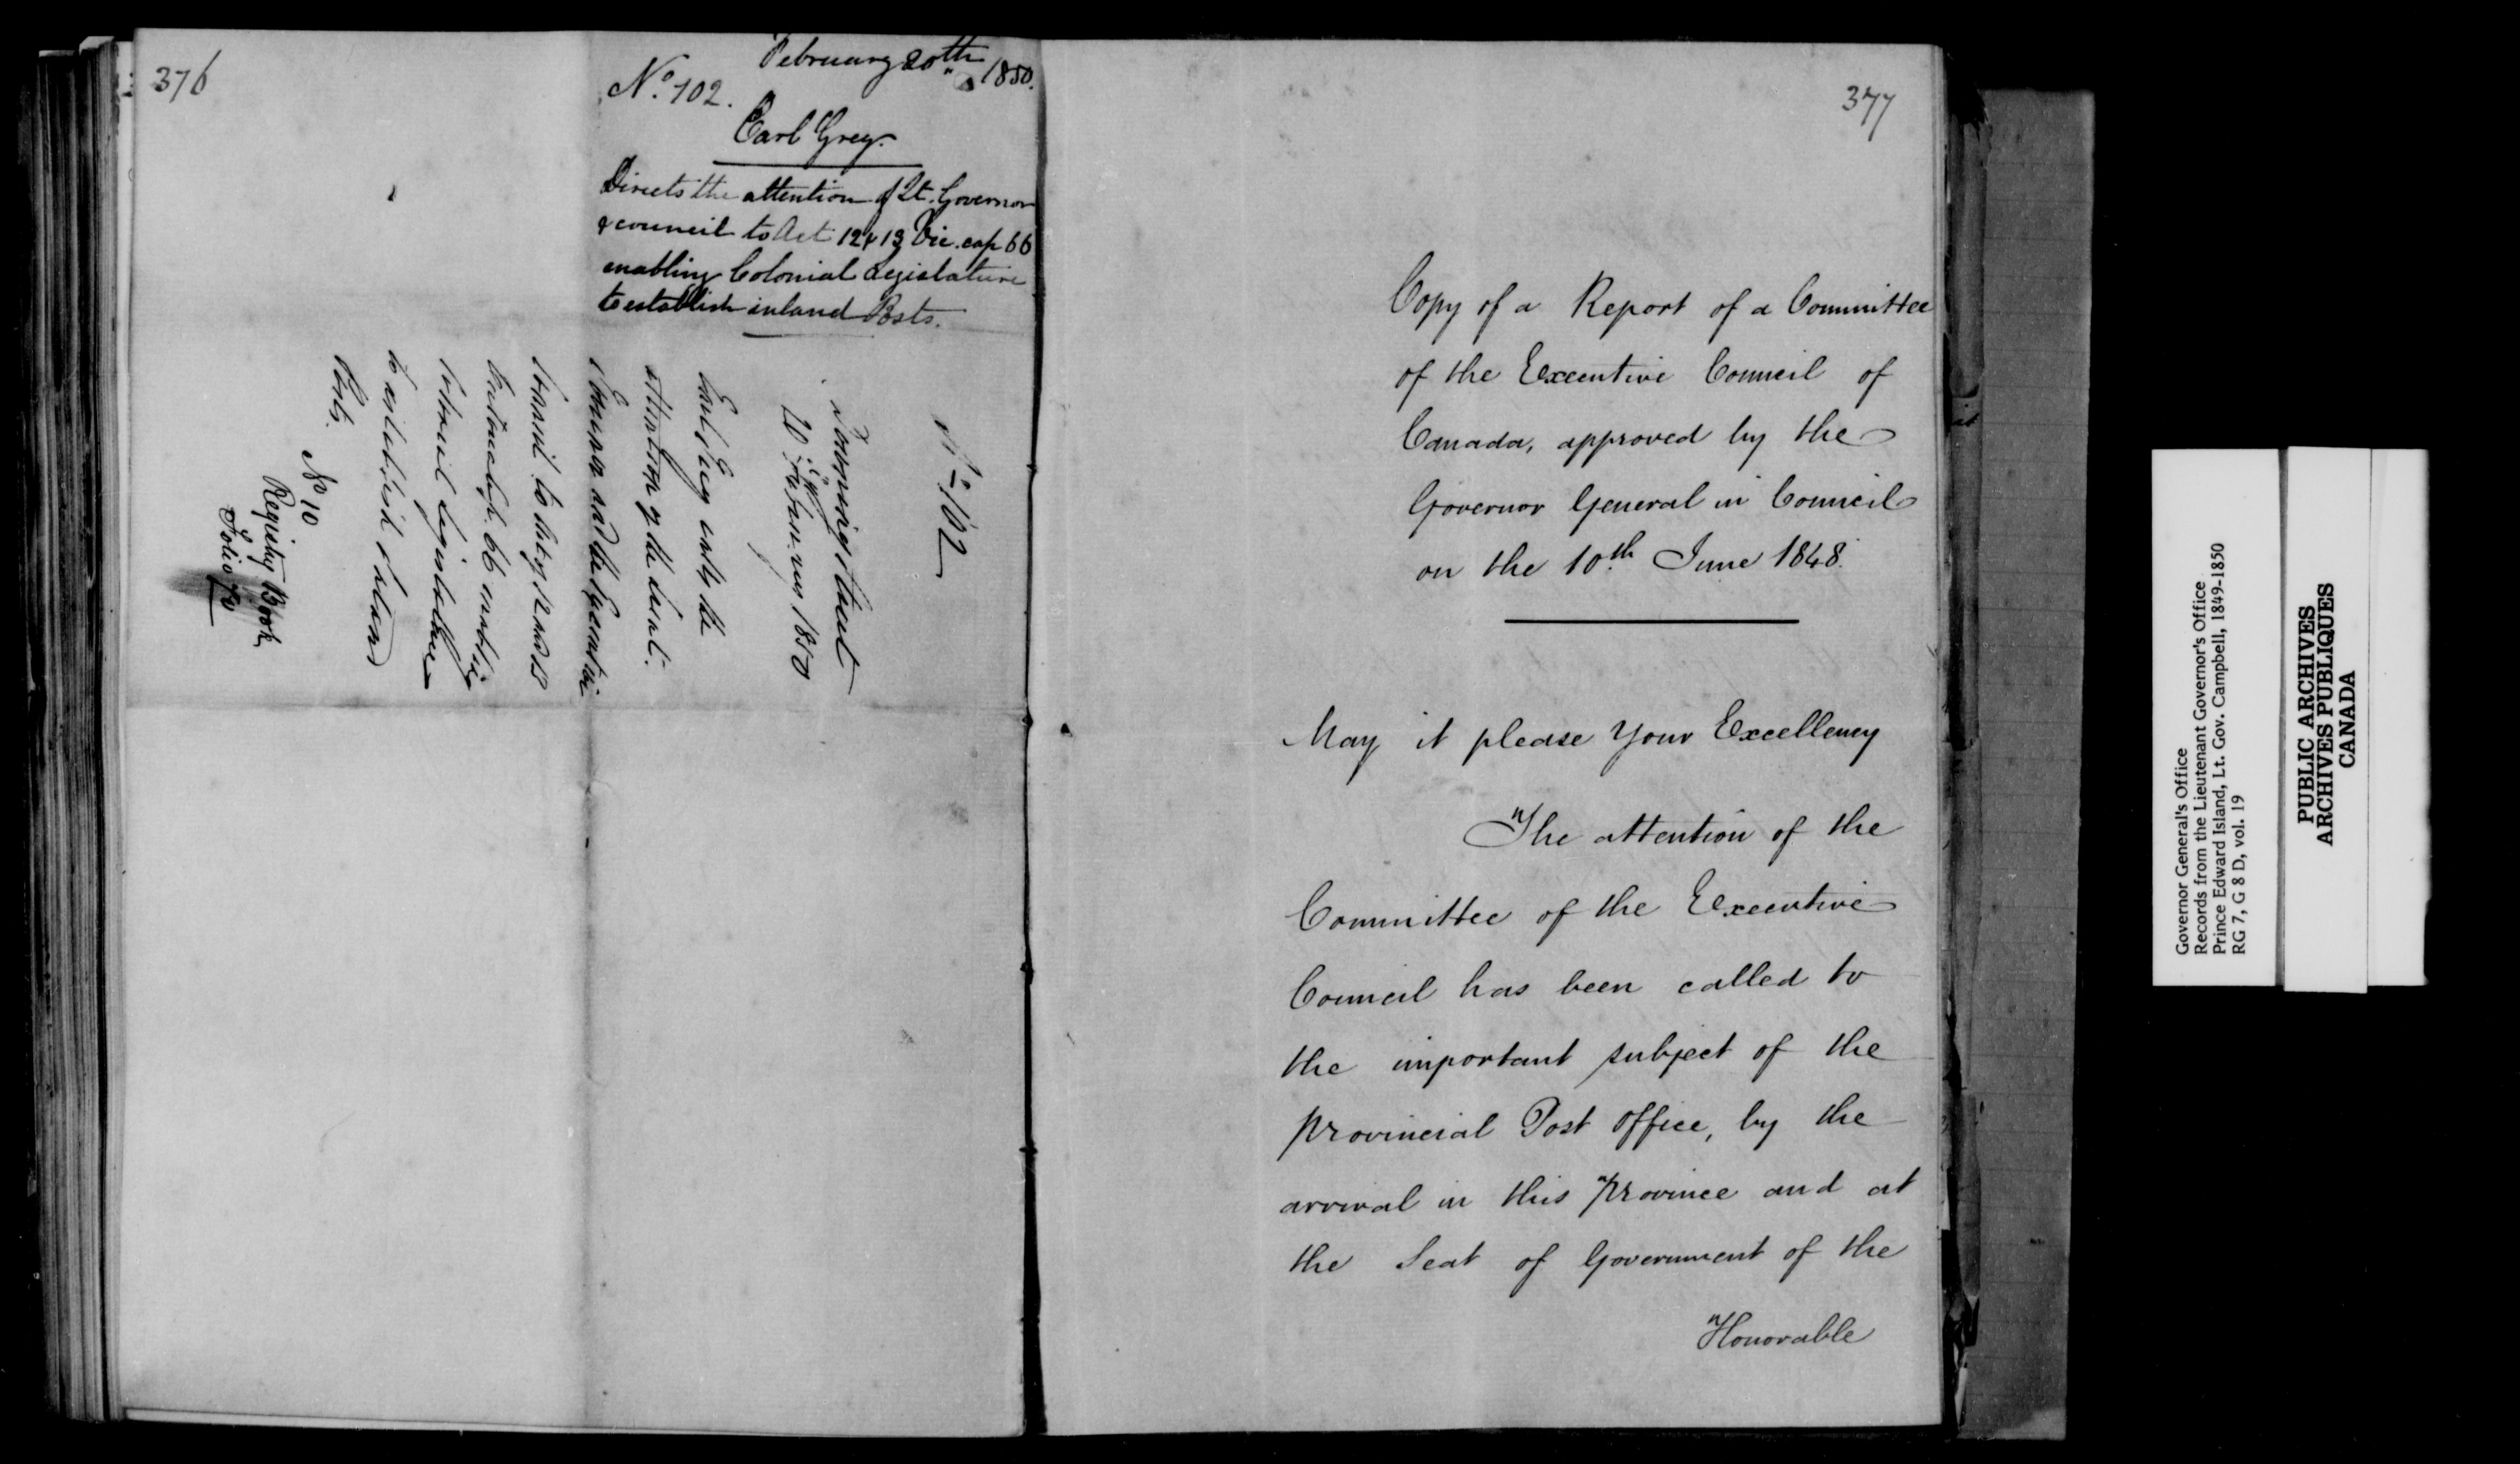 376
February 20th 1850.
No. 102.
Earl Grey.
Directs the attention of Lt. Governor
& council to Act 12 & 13 Vic. cap 66
enabling Colonial Legislature
to establish inland Posts.
No. 102
Downing Street
20 February 1850
Earl Grey calls the
attention of the Lieut.
Governor and the Executive
Council to Act of 12 and 13
Victoria Cap. 66 enabling
Colonial Legislature
to establish Inland
Posts.
No 10
Registry Book
Folio 70
377
Copy of a Report of a Committee
of the Executive Council of
Canada, approved by the
Governor General in Council
on the 10th June 1848.
May it please Your Excellency
The attention of the
Committee of the Executive
Council has been called to
the important subject of the
Provincial Post Office, by the
arrival in this Province and at
the Seat of Government of the
Honorable
Governor General's Office
Records from the Lieutenant Governor's Office
Prince Edward Island, Lt. Gov. Campbell, 1849-1850
RG 7, G 8 D, vol. 19
PUBLIC ARCHIVES
ARCHIVES PUBLIQUES
CANADA